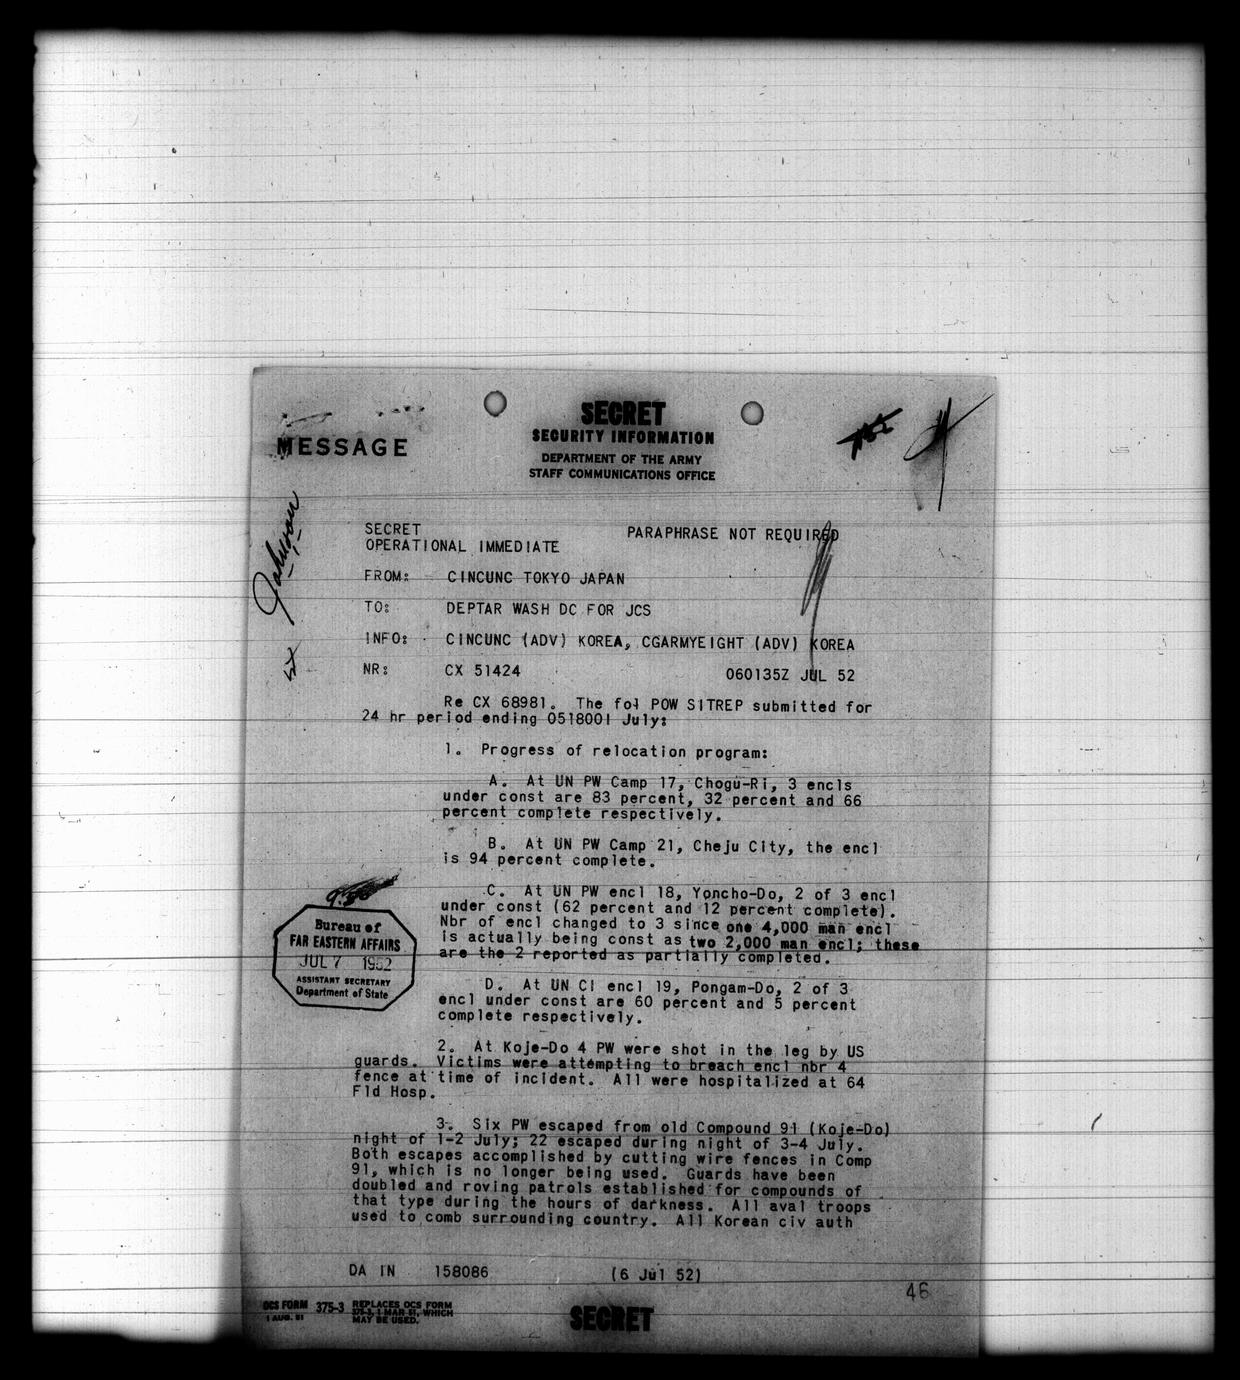 SECRET
SECURITY INFORMATION
MESSAGE
DEPARTMENT OF THE ARMY
STAFF COMMUNICATIONS OFFICE
Johnson
SECRET PARAPHRASE NOT REQUIRED
OPERATIONAL IMMEDIATE
FROM: CINCUNC TOKYO JAPAN
TO: DEPTAR WASH DC FOR JCS
INFO: CINCUNC (ADV) KOREA, CGARMYEIGHT (ADV) KOREA
NR: CX 51424 060135Z JUL 52
Re CX 68981. The fol POW SITREP submitted for
24 hr period ending 051800I July:
1. Progress of relocation program:
A. At UN PW Camp 17, Chogu-Ri, 3 encls
under const are 83 percent, 32 percent and 66
percent complete respectively.
B. At UN PW Camp 21, Cheju City, the encl
is 94 percent complete.
C. At UN PW encl 18, Yoncho-Do, 2 of 3 encl
under const (62 percent and 12 percent complete).
Nbr of encl changed to 3 since one 4,000 man encl
is actually being const as two 2,000 man encl; these
are the 2 reported as partially completed.
Bureau of
FAR EASTERN AFFAIRS
JUL 7 1952
ASSISTANT SECRETARY
Department of State
D. At UN CI encl 19, Pongam-Do, 2 of 3
encl under const are 60 percent and 5 percent
complete respectively.
2. At Koje-Do 4 PW were shot in the leg by US
guards. Victims were attempting to breach encl nbr 4
fence at time of incident. All were hospitalized at 64
Fld Hosp.
3. Six PW escaped from old Compound 91 (Koje-Do)
night of 1-2 July; 22 escaped during night of 3-4 July.
Both escapes accomplished by cutting wire fences in Comp
91, which is no longer being used. Guards have been
doubled and roving patrols established for compounds of
that type during the hours of darkness. All aval troops
used to comb surrounding country. All Korean civ auth
DA IN 158086 (6 Jul 52)
46
OCS FORM 375-3 REPLACES OCS FORM
1 AUG. 51 375-3, 1 MAR 51, WHICH
MAY BE USED.
SECRET